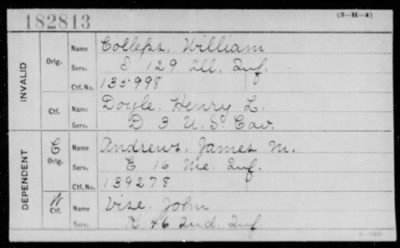 182813
(3-H-4)
INVALID
Orig.
Name Colleps, William
Serv. I 129 Ill. Inf.
Ctf. No. 135998
Ctf.
Name Doyle, Henry L.
Serv. D 3 U.S. Cav.
DEPENDENT
C
Orig.
Name Andrews, James M.
Serv. E 16 Me. Inf.
Ctf. No. 139278
W
Ctf.
Name Vise, John
Serv. K 46 Ind. Inf.